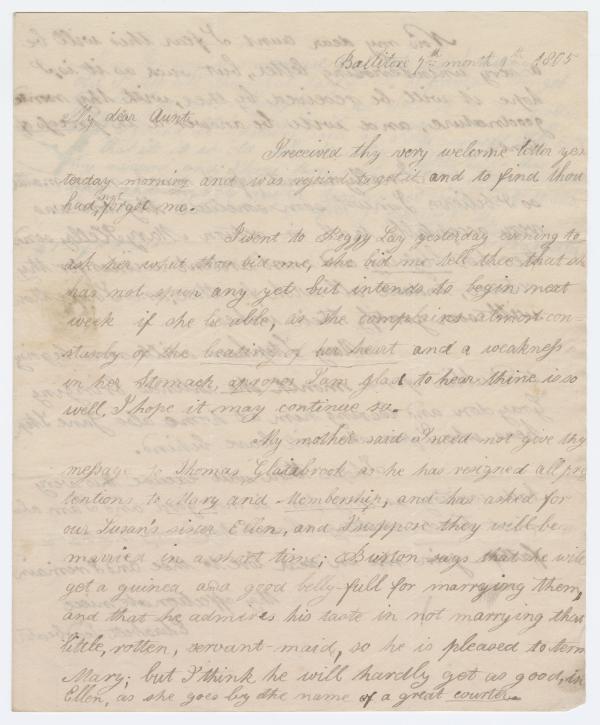 Ballitore 9th month 9th 1805
My dear Aunt
I received thy very welcome letter yes-
terday morning and was rejoiced to get it and to find thou
had not forgot me.
I went to Peggy Lay yesterday evening to
ask her what thou bid me, she bid me tell thee that she
has not spun any yet but intends to begin next
week if she be able, as she complains almost con-
stantly of the beating of her heart and a weakness
in her Stomach, apropos I am glad to hear thine is so
well, I hope it may continue so.
My mother said I need not give thy
message to Thomas Glaisbrook as he has resigned all pre
tentions to Mary and Membership, and has asked for
our Susan's sister Ellen, and I suppose they will be
married in a short time; Burton says that he will
get a guinea, and a good belly-full for marrying them,
and that he admires his taste in not marrying that
little, rotten, servant-maid, so he is pleased to term
Mary; but I think he will hardly get as good, in
Ellen, as she goes by the name of a great courter.